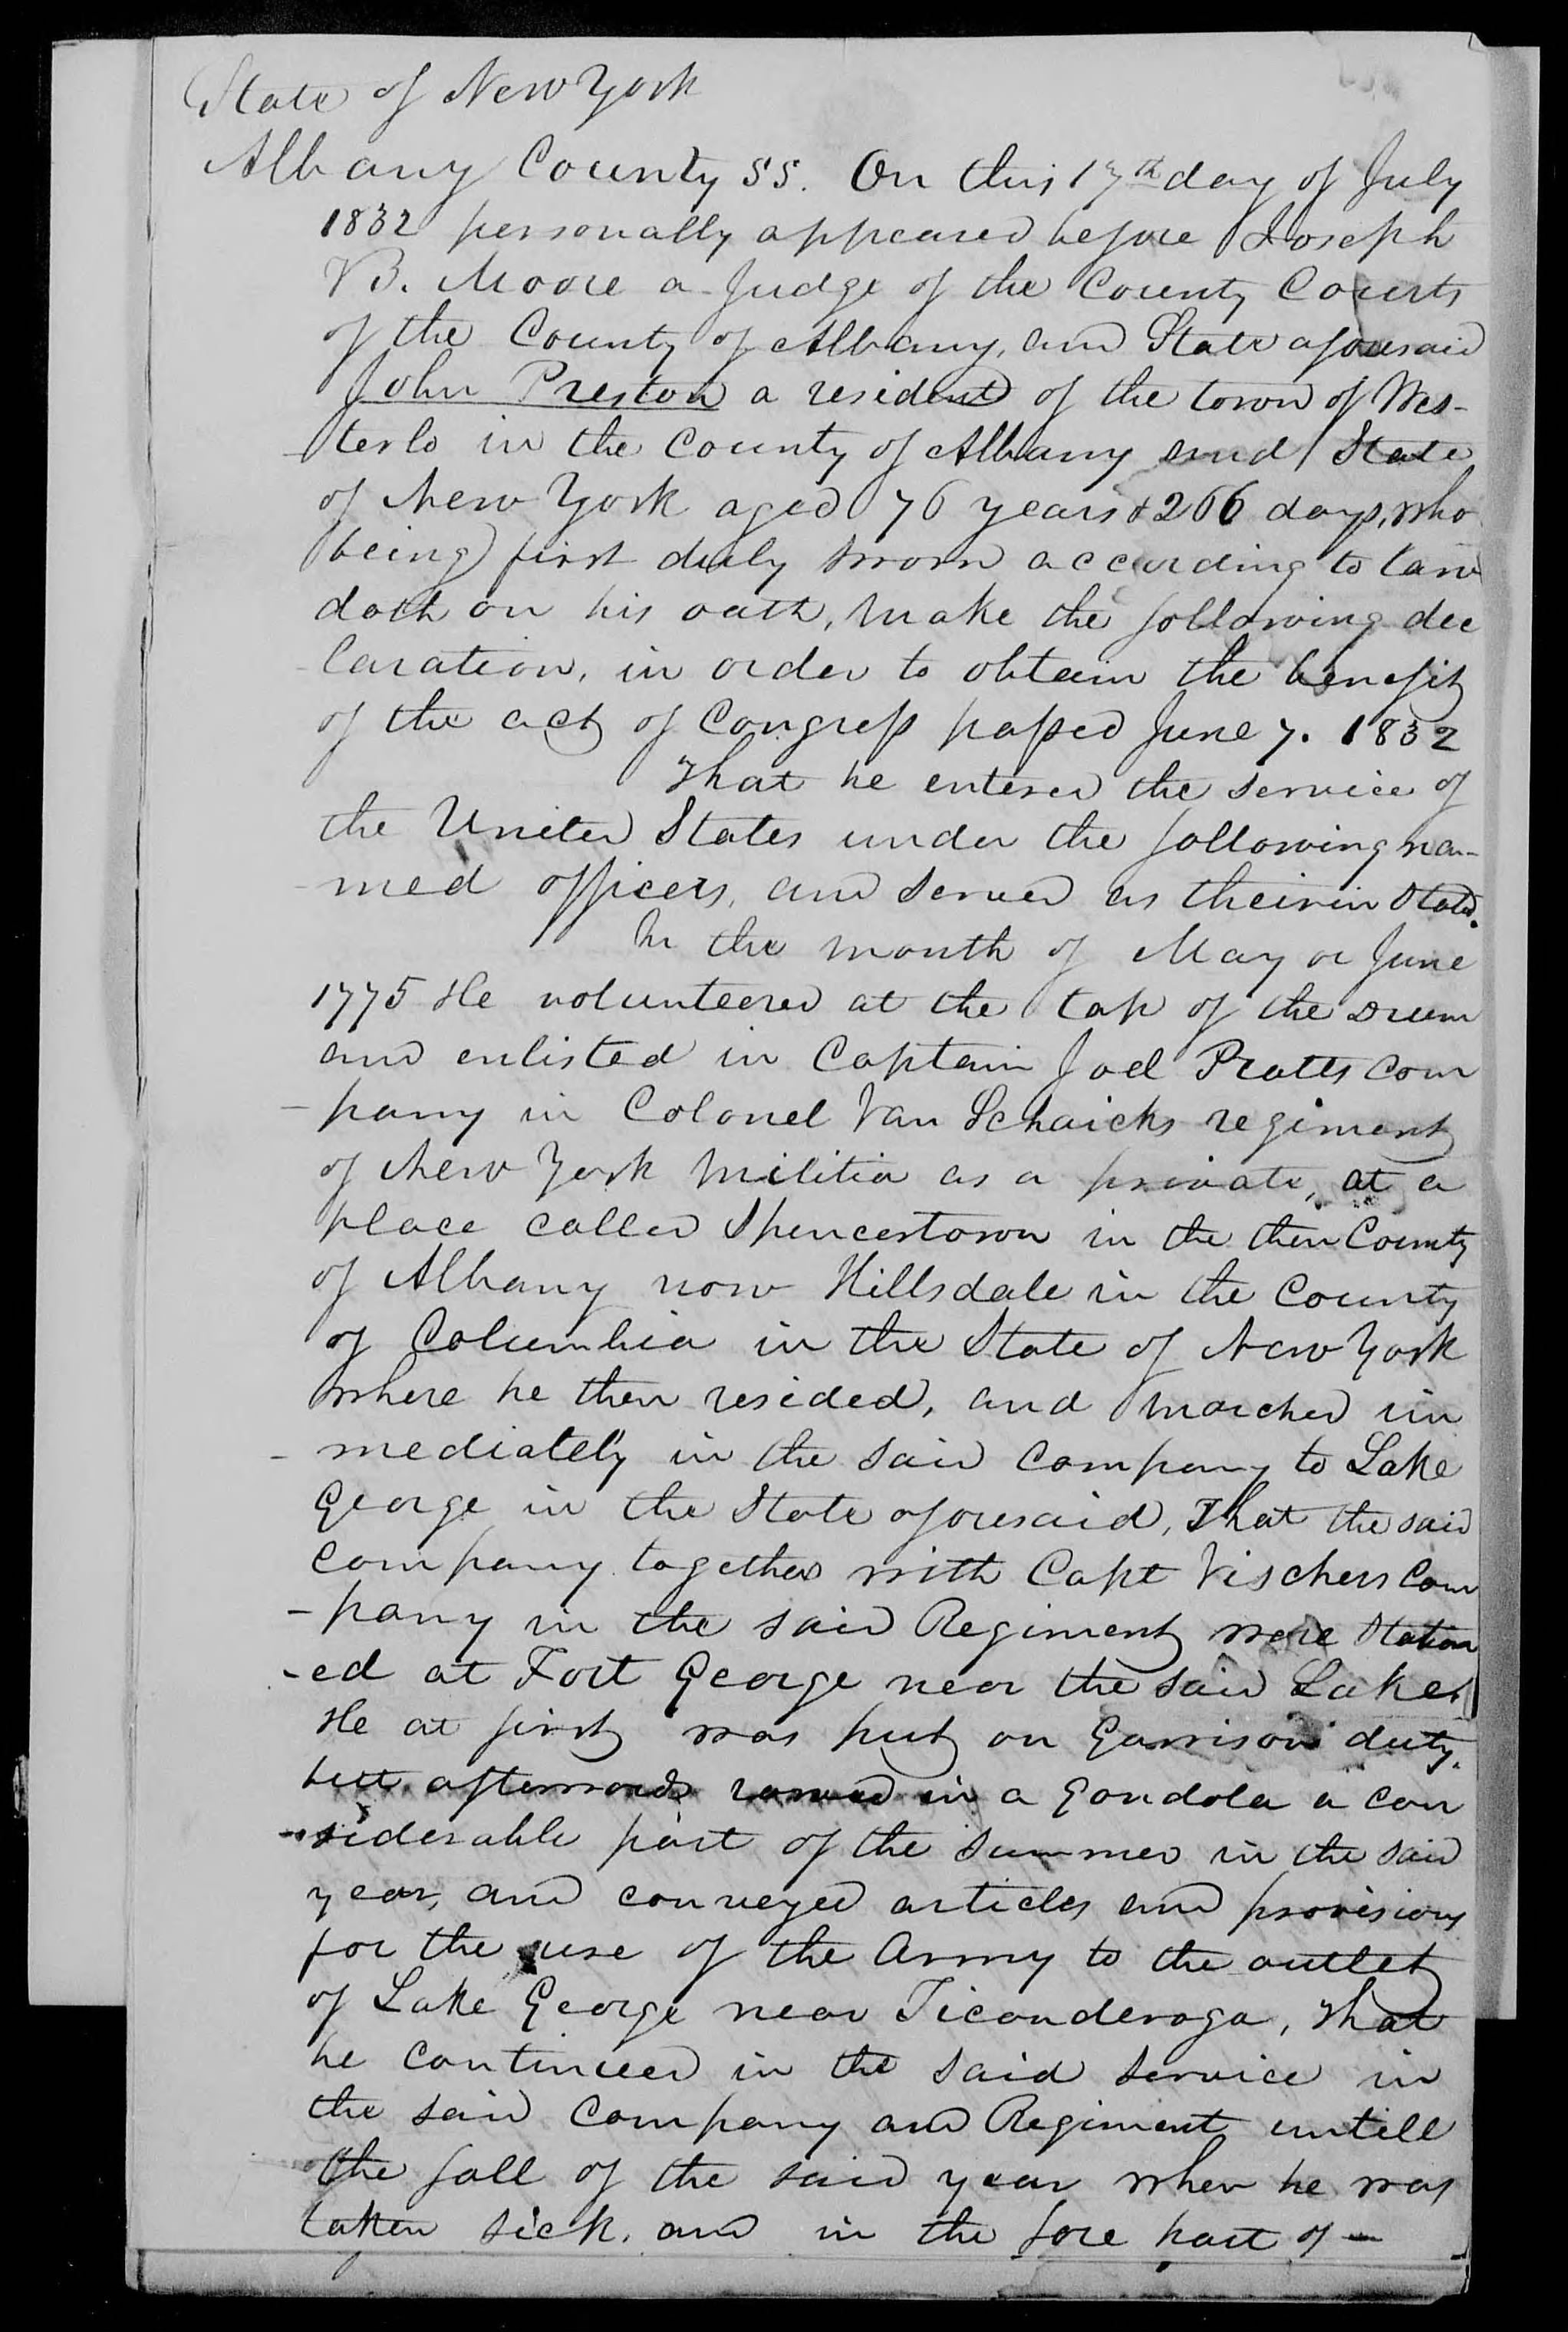 State of New York
Albany County SS. On this 17th day of July
1832 personally appeared before Joseph
B. Moore a Judge of the County Courts
of the County of Albany, and State aforesaid
John Preston a resident of the town of Wes-
-terlo in the County of Albany and State
of New York aged 76 years & 266 days, who
being first duly sworn according to law
doth on his oath, make the following dec
-laration, in order to obtain the benefit
of the act of Congress passed June 7. 1832
That he entered the service of
the United States under the following na-
-med officers, and served as theirin Stated.
In the month of May or June
1775 He volunteered at the tap of the Drum
and enlisted in Captain Joel Pratts Com
-pany in Colonel Van Schaicks regiment
of New York Militia as a private, at a
place called Spencertown in the then County
of Albany now Hillsdale in the County
of Columbia in the State of New York
where he then resided, and marched im
-mediately in the said Company to Lake
George in the State aforesaid, That the said
Company together with Capt Vischers Com
-pany in the said Regiment were Station
-ed at Fort George near the said Lake.
He at first was put on Garrison duty.
but afterwards rowed in a Gondola a con
-siderable part of the summer in the said
year, and conveyed articles and provisions
for the use of the Army to the outlet
of Lake George near Ticonderoga, that
he continued in the said service in
the said Company and Regiment untill
the fall of the said year when he was
taken sick, and in the fore part of –